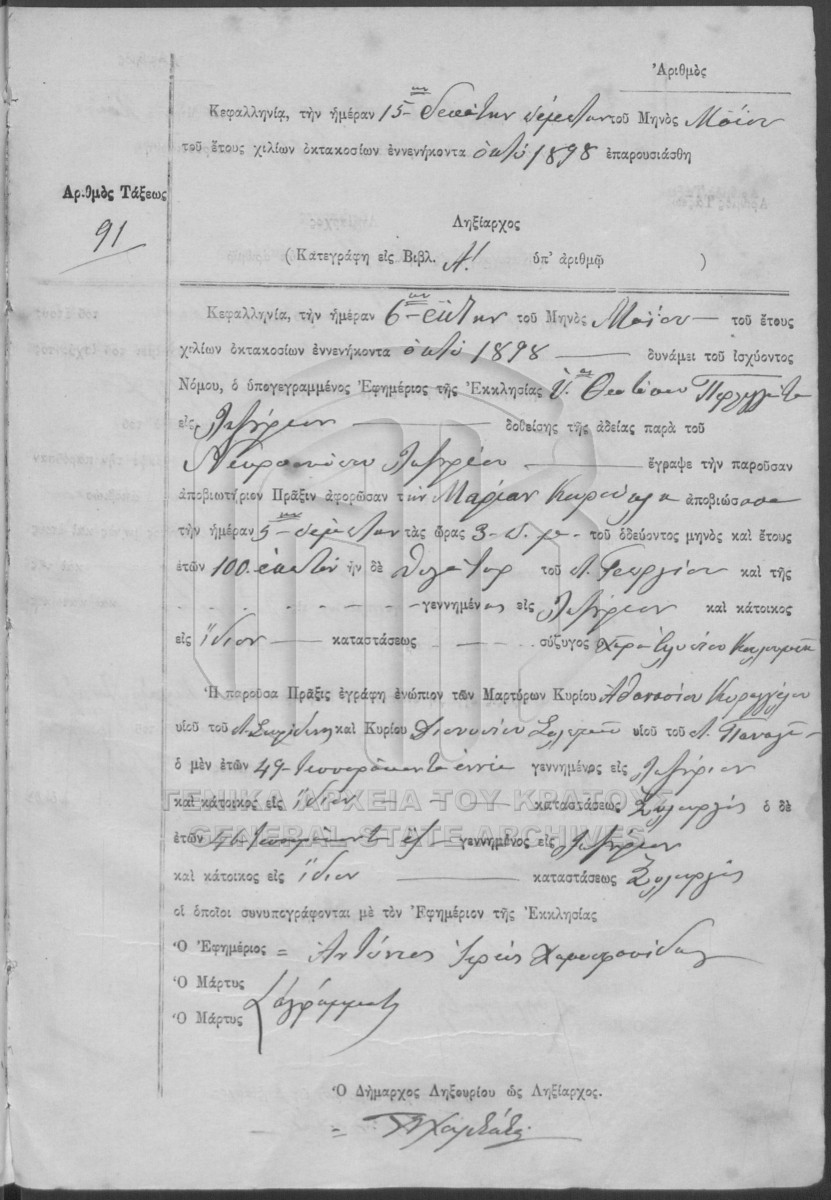 Ἀριθμὸς
Κεφαλληνίᾳ, τὴν ἡμέραν 15- δεκάτην πέμπτην τοῦ Μηνὸς Μαΐου
τοῦ ἔτους χιλίων ὀκτακοσίων ἐννενήκοντα ὀκτὼ 1898 ἐπαρουσιάσθη
Ἀριθμὸς Τάξεως
91
Ληξίαρχος
(Κατεγράφη εἰς Βιβλ. Α! ὑπ' ἀριθμῷ )
Κεφαλληνίᾳ, τὴν ἡμέραν 6- ἕκτην τοῦ Μηνὸς Μαΐου — τοῦ ἔτους
χιλίων ὀκτακοσίων ἐννενήκοντα ὀκτὼ 1898 — δυνάμει τοῦ ἰσχύοντος
Νόμου, ὁ ὑπογεγραμμένος Ἐφημέριος τῆς Ἐκκλησίας Θεοτόκου
εἰς Ληξούριον — δοθείσης τῆς ἀδείας παρὰ τοῦ
Ληξουρίου — ἔγραψε τὴν παροῦσαν
ἀποβιωτήριον Πρᾶξιν ἀφορῶσαν τὴν Μαρίαν ἀποβιώσασα
τὴν ἡμέραν 5- πέμπτην τὰς ὥρας 3- τοῦ ὁδεύοντος μηνὸς καὶ ἔτους
ἐτῶν 100. ἑκατὸν ἦν δὲ θυγάτηρ τοῦ Γεωργίου καὶ τῆς
γεννημένος εἰς Ληξούριον καὶ κάτοικος
εἰς ἴδιον — καταστάσεως — σύζυγος χήρα
Ἡ παροῦσα Πρᾶξις ἐγράφη ἐνώπιον τῶν Μαρτύρων Κυρίου Ἀθανασίου
υἱοῦ τοῦ Σπυρίδωνος καὶ Κυρίου Διονυσίου υἱοῦ τοῦ Παναγῆ
ὁ μὲν ἐτῶν 49- τεσσαράκοντα ἐννέα γεννημένος εἰς Ληξούριον
καὶ κάτοικος εἰς ἴδιον — καταστάσεως Ξυλουργὸς ὁ δὲ
ΓΕΝΙΚΑ ΑΡΧΕΙΑ ΤΟΥ ΚΡΑΤΟΥΣ
GENERAL STATE ARCHIVES
ἐτῶν 46 ἓξ — γεννημένος εἰς Ληξούριον
καὶ κάτοικος εἰς ἴδιον — καταστάσεως Ξυλουργὸς
οἱ ὁποῖοι συνυπογράφονται μὲ τὸν Ἐφημέριον τῆς Ἐκκλησίας
Ὁ Ἐφημέριος = Ἀντώνιος Ἱερεὺς
Ὁ Μάρτυς
Ἀγράμματοι
Ὁ Μάρτυς
Ὁ Δήμαρχος Ληξουρίου ὡς Ληξίαρχος.